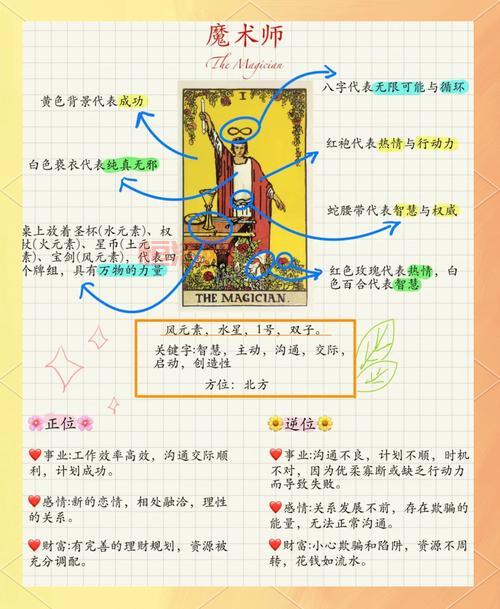 魔术师
The Magician
八字代表无限可能与循环
黄色背景代表成功
红袍代表热情与行动力
白色亵衣代表纯真无邪
蛇腰带代表智慧与权威
桌上放着圣杯(水元素)、权
杖(火元素)、星币(土元
素)、宝剑(风元素)，代表四
个牌组，具有万物的力量
红色玫瑰代表热情，白
色百合代表智慧
I
THE MAGICIAN.
风元素，水星，1号，双子。
关键字:智慧，主动，沟通，交际，
启动，创造性
方位：北方
正位
事业:工作效率高效，沟通交际顺
利，计划成功。
感情:新的恋情，相处融洽，理性
的关系。
财富:有完善的理财规划，资源被
充分调配。
逆位
事业:沟通不良，计划不顺，时机
不对，因为优柔寡断或缺乏行动力
而导致失败。
感情:关系发展不前，存在欺骗的
能量，无法正常沟通。
财富:小心欺骗和陷阱，资源不周
转，花钱如流水。